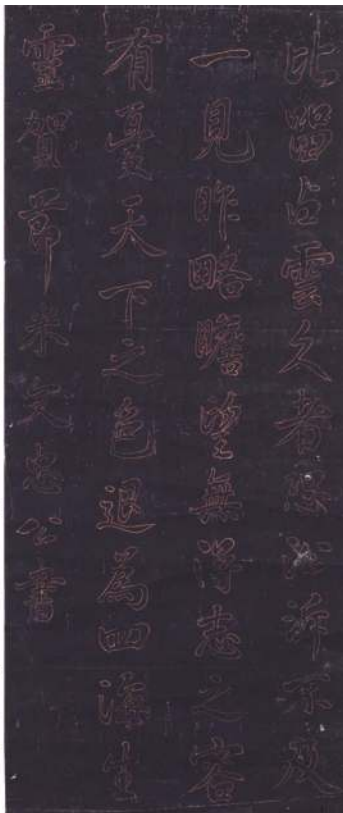 比留占雲久者恐沿泝不及
一見昨略瞻望無得志之容
有憂天下之色退為四海生
靈賀節朱文忠公書